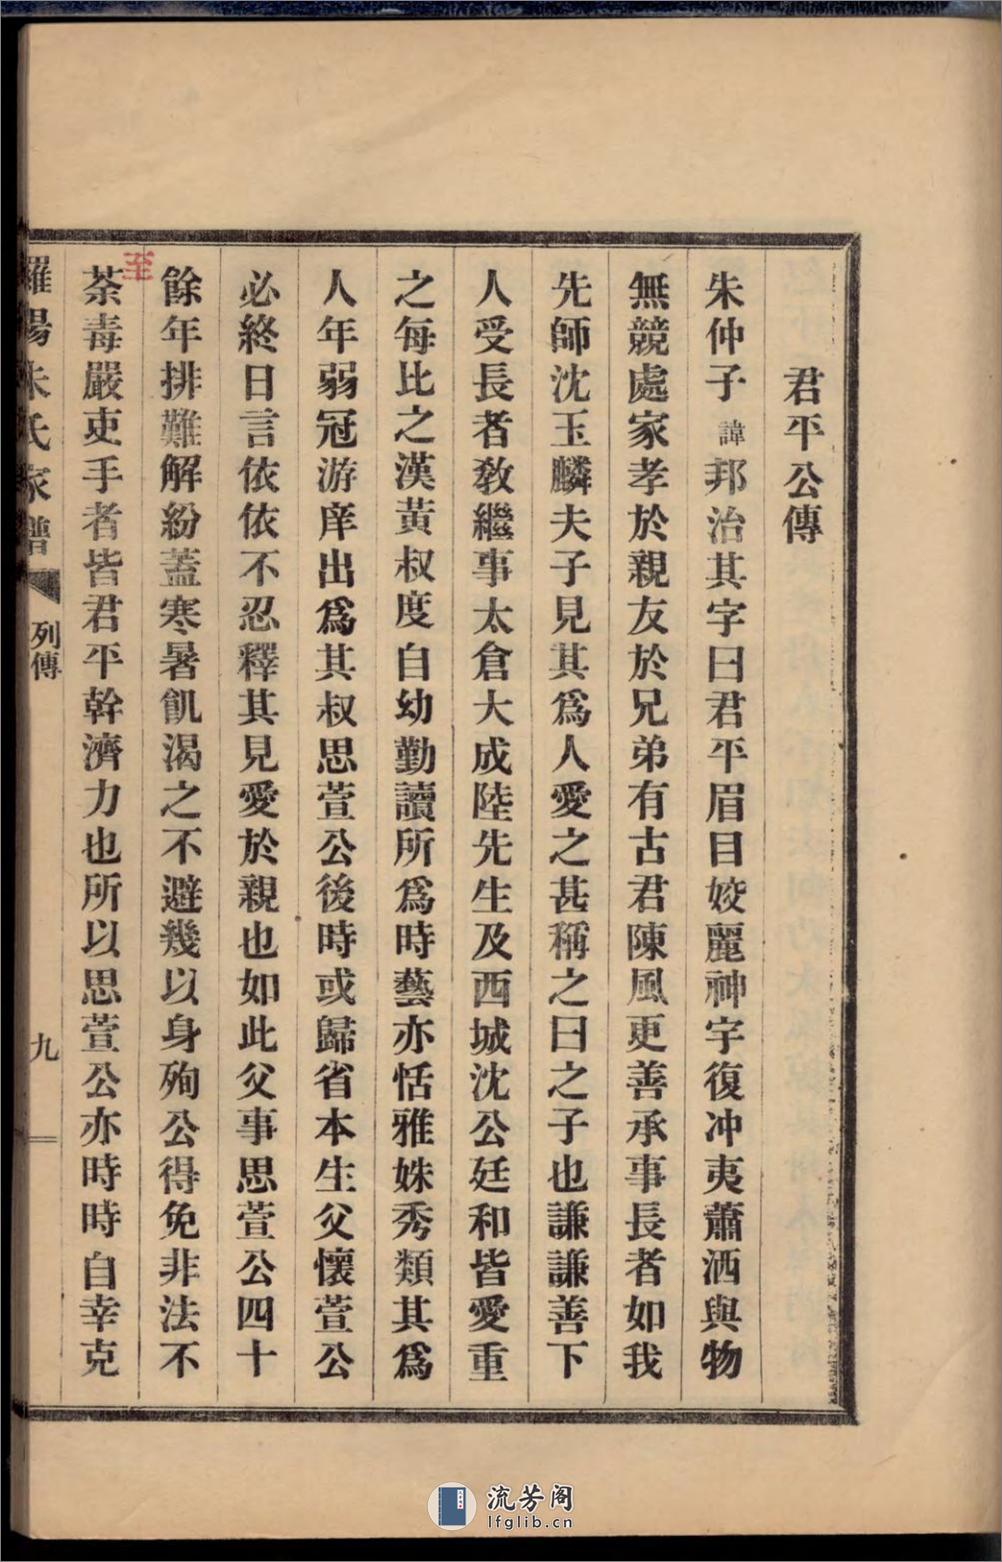 君平公傳
朱仲子諱邦治其字曰君平眉目姣麗神宇復冲夷蕭洒與物
無競處家孝於親友於兄弟有古君陳風更善承事長者如我
先師沈玉麟夫子見其爲人愛之甚稱之曰之子也謙謙善下
人受長者敎繼事太倉大成陸先生及西城沈公廷和皆愛重
之每比之漢黃叔度自幼勤讀所爲時藝亦恬雅姝秀類其爲
人年弱冠游庠出爲其叔思萱公後時或歸省本生父懷萱公
必終日言依依不忍釋其見愛於親也如此父事思萱公四十
餘年排難解紛蓋寒暑飢渴之不避幾以身殉公得免非法不
至
荼毒嚴吏手者皆君平幹濟力也所以思萱公亦時時自幸克
羅陽朱氏家譜 列傳 九
流芳阁
lfglib.cn